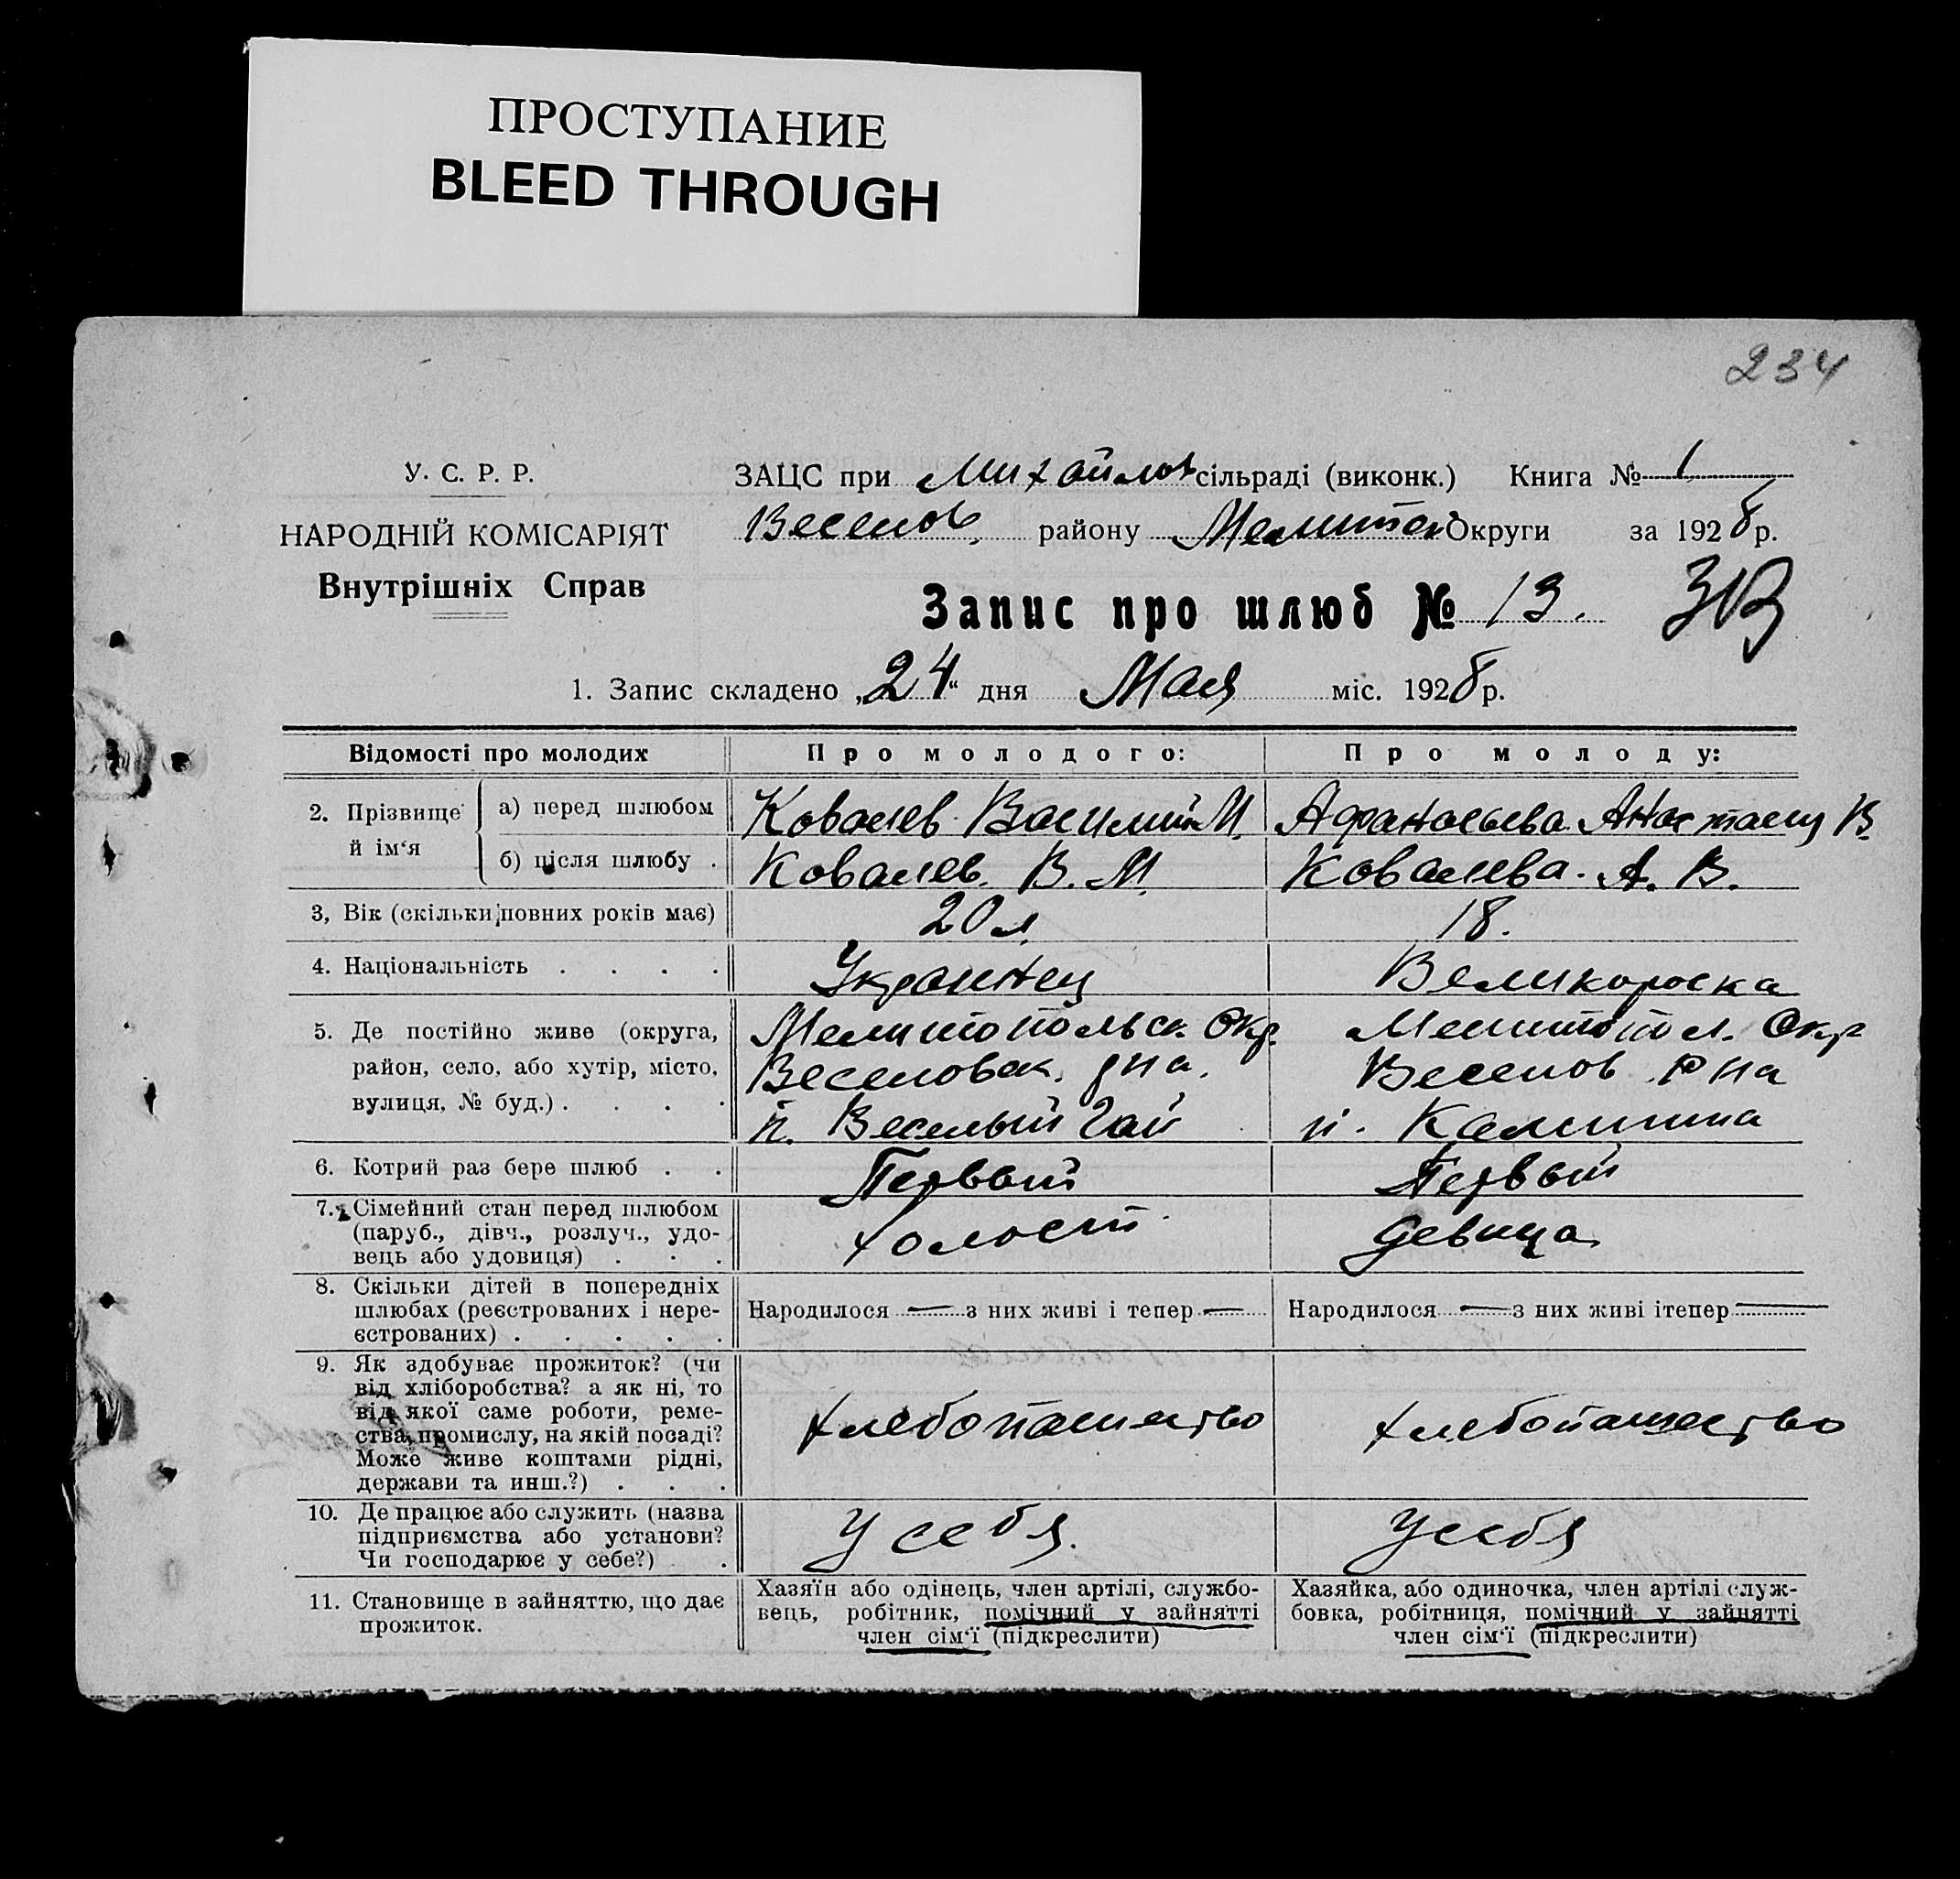 ПРОСТУПАНИЕ
BLEED THROUGH
234
У. С. Р. Р.
НАРОДНІЙ КОМІСАРІЯТ
Внутрішніх Справ
ЗАЦС при Михайлов сільраді (виконк.) Книга № 1
Веселов. району Мелитоп Округи за 1928 р.
Запис про шлюб № 13.
1. Запис складено „24“ дня Мая міс. 1928 р.
Відомості про молодих Про молодого: Про молоду:
2. Прізвище й ім‘я
а) перед шлюбом Ковалев Василий М. Афанасьева Анастасия В.
б) після шлюбу . Ковалев. В. М. Ковалева. А. В.
3, Вік (скільки повних років має) 20 л. 18.
4. Національність . . . . Украинец Великороска
5. Де постійно живе (округа, Мелитопольск. Окр. Мелитопол. Окр
район, село, або хутір, місто, Веселовск. рна. Веселов Рна
вулиця, № буд.) . . . . п. Веселый Гай п. Калинина
6. Котрий раз бере шлюб . . Первый Первый
7. Сімейний стан перед шлюбом
(паруб., дівч., розлуч., удо- холост. девица
вець або удовиця) . . .
8. Скільки дітей в попередніх
шлюбах (реєстрованих і нере- Народилося — з них живі і тепер — Народилося — з них живі ітепер —
єстрованих) . . . . .
9. Як здобуває прожиток? (чи
від хліборобства? а як ні, то
від якої саме роботи, реме- хлебопашество хлебопашество
ства, промислу, на якій посаді?
Може живе коштами рідні,
держави та инш.?) . . .
10. Де працює або служить (назва
підприємства або установи? У себя. У себя
Чи господарює у себе?) .
11. Становище в зайняттю, що дає Хазяїн або одінець, член артілі, службо- Хазяйка, або одиночка, член артілі служ-
прожиток. вець, робітник, помічний у зайнятті бовка, робітниця, помічний у зайнятті
член сім‘ї (підкреслити) член сім‘ї (підкреслити)